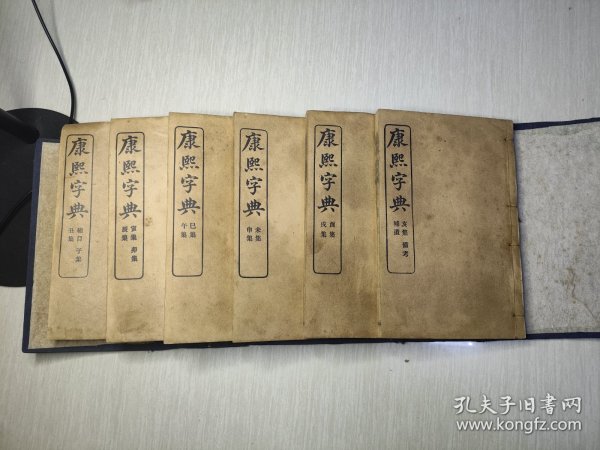 康熙字典
總目 子集
丑集
康熙字典
寅集 卯集
辰集
康熙字典
巳集
午集
康熙字典
未集
申集
康熙字典
酉集
戌集
康熙字典
亥集 備考
補遺
孔夫子旧书网
www.kongfz.com